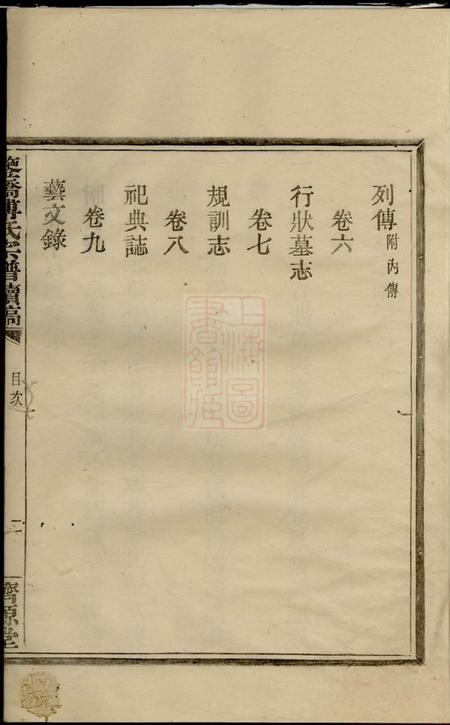 列傳附內傳
卷六
行狀墓志
卷七
規訓志
卷八
祀典誌
卷九
藝文錄
傅氏宗譜續稿
目次
二
濟源堂
上海圖書館藏